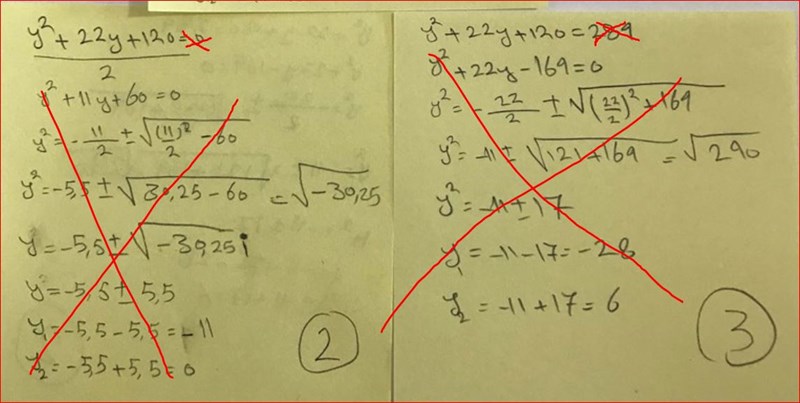 y² + 22y + 120 = 0
2
y² + 11y + 60 = 0
y² = -11/2 ± √((11)²/2 - 60)
y² = -5,5 ± √(30,25 - 60) = √(-30,25)
y² = -5,5 ± √(-30,25 i)
y² = -5,5 ± 5,5
y₁ = -5,5 - 5,5 = -11
y₂ = -5,5 + 5,5 = 0
2
y² + 22y + 120 = 289
y² + 22y - 169 = 0
y² = -22/2 ± √((22/2)² + 169)
y² = -11 ± √(121 + 169) = √290
y² = -11 ± 17
y₁ = -11 - 17 = -28
y₂ = -11 + 17 = 6
3